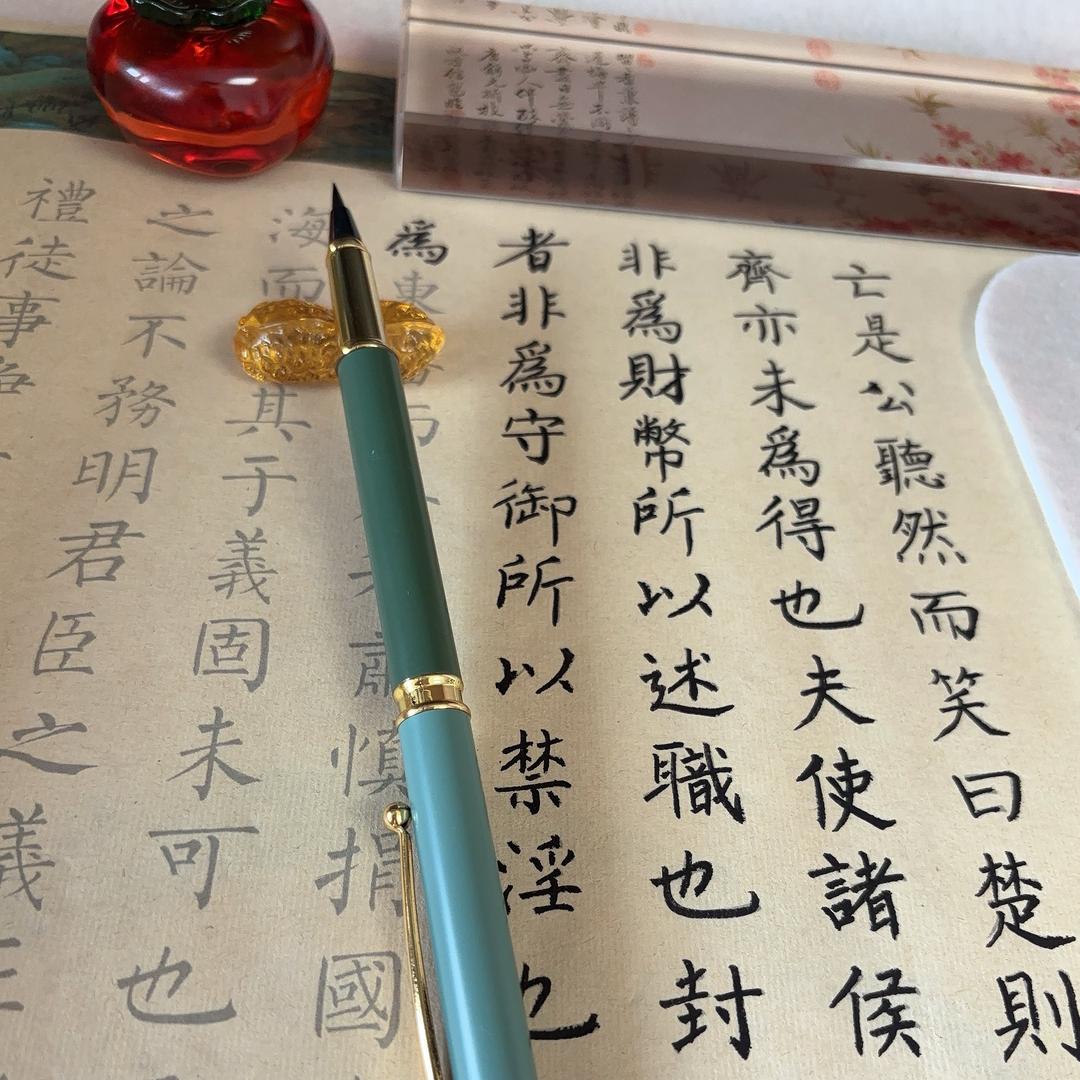 亡是公聽然而笑曰楚則
齊亦未爲得也夫使諸侯
非爲財幣所以述職也封
者非爲守御所以禁淫也
爲東肅慎捐國
海而其于義固未可也
之論不務明君臣之義
禮徒事